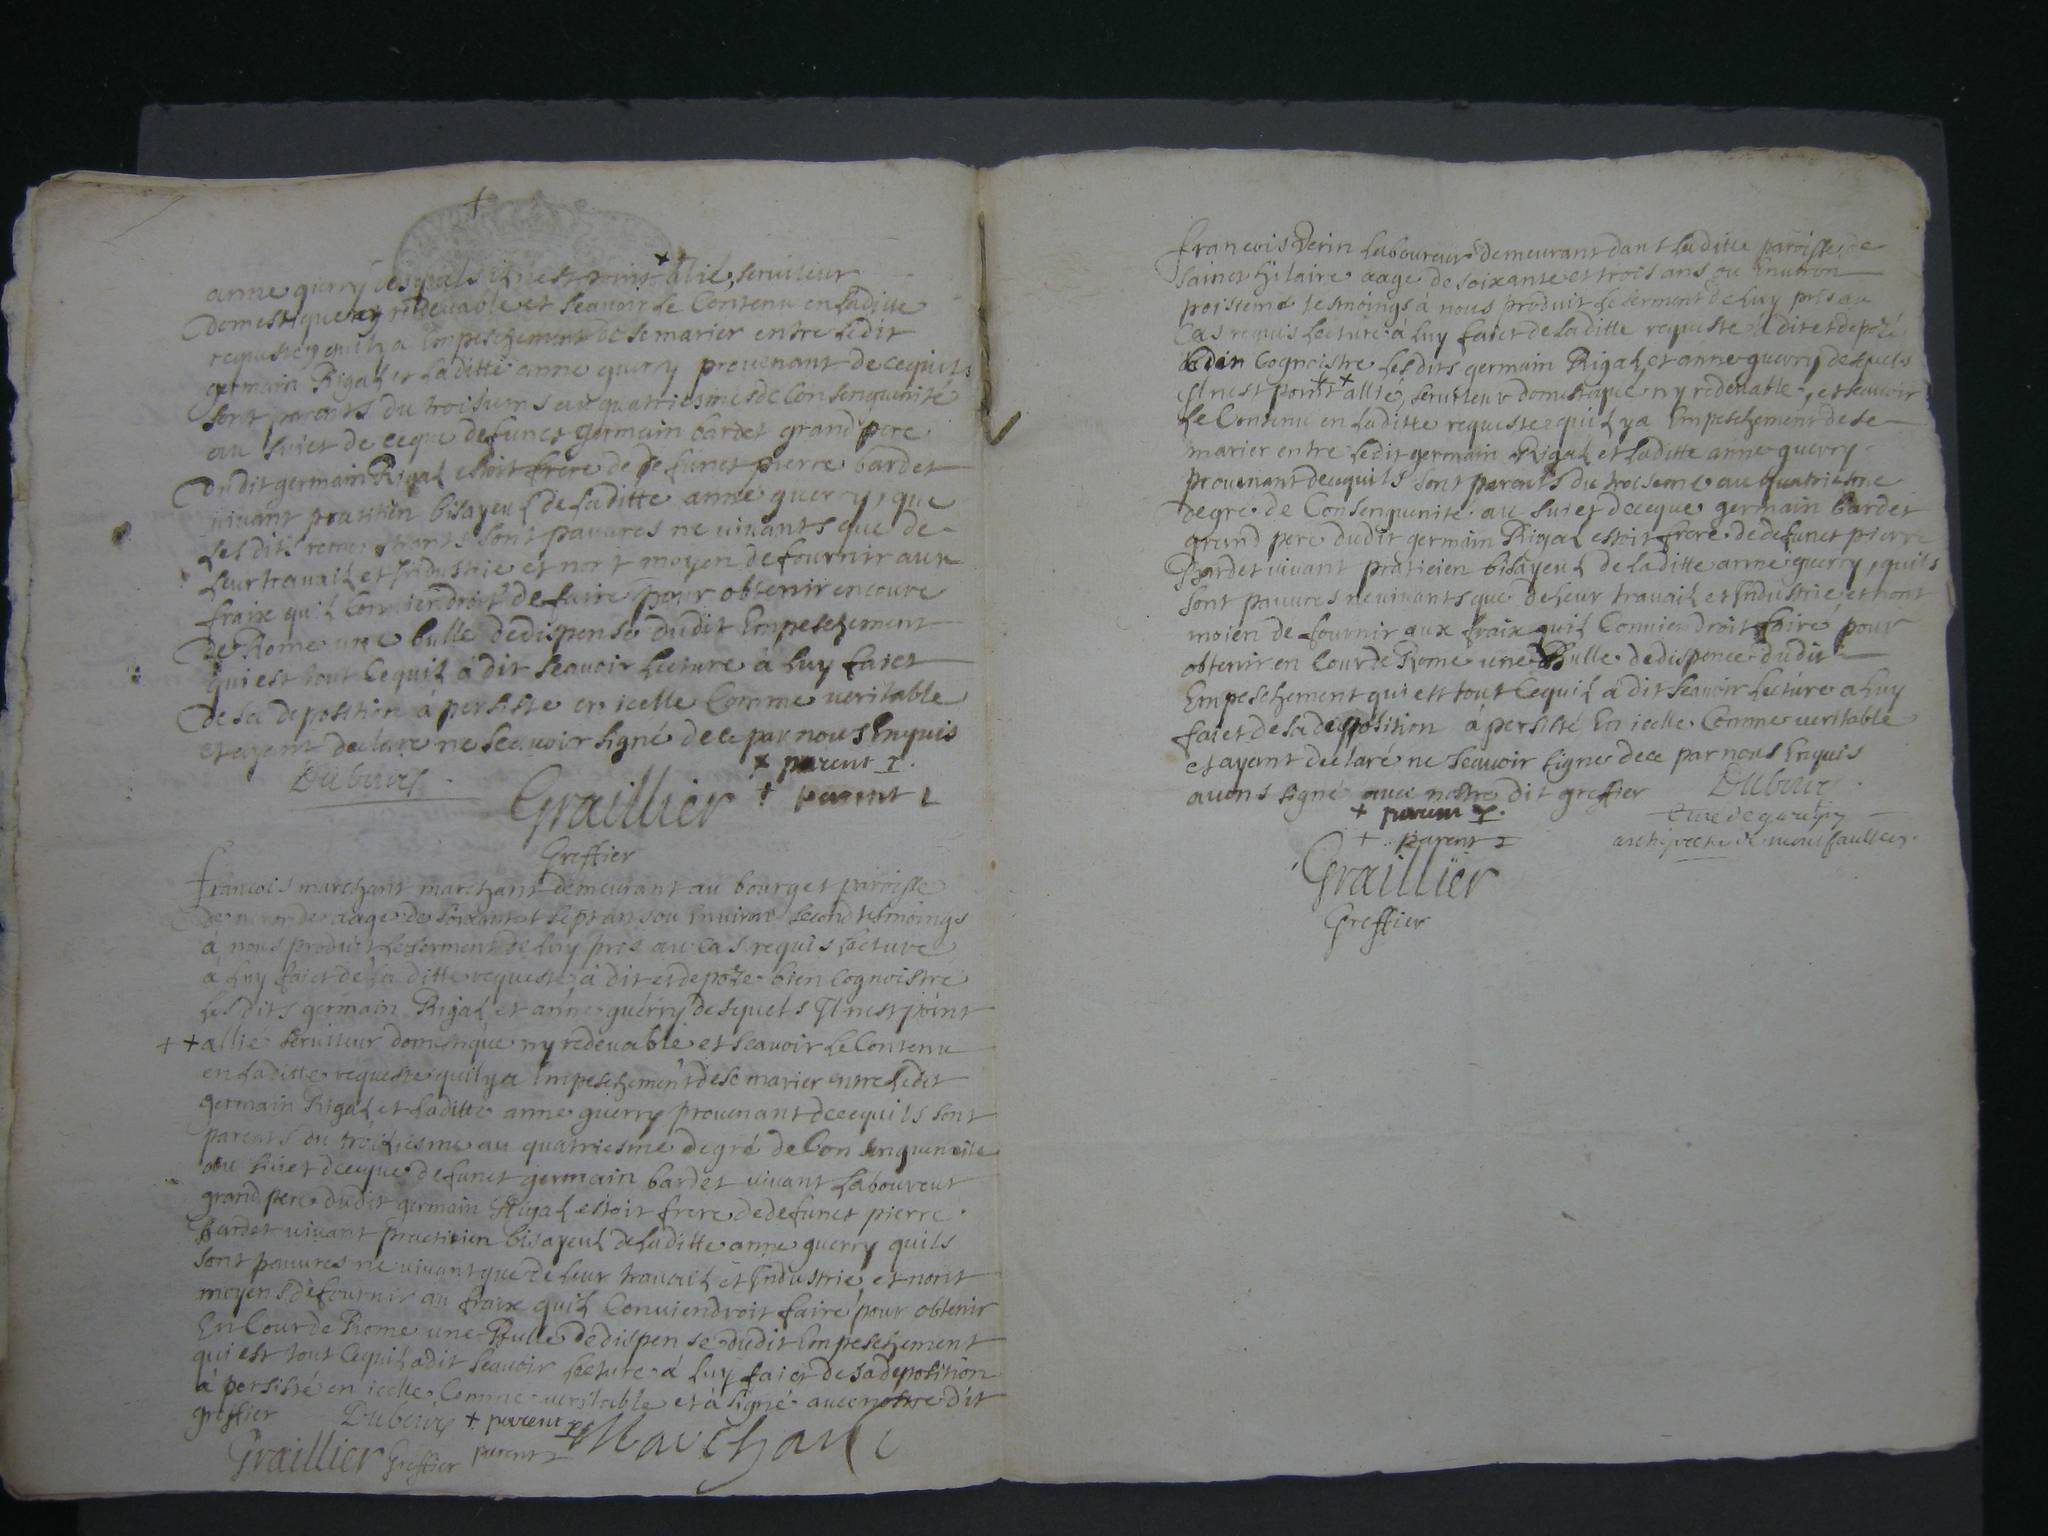 anne guerry desquels il nest point + alié, seruiteur
domestique ny redeuable et scauoir le Contenu en Ladite
requeste quil y a Empeschement de se marier entre ledit
germain Rigal et laditte anne guerry prouenant de cequils
sont parents du troisiems au quatriesmes de Consenguinité
au suiet de ceque defunct germain bardet grand pere
Dudit germain Rigal estoit frere de defunct pierre bardet
viuant pratitien bisayeul de laditte anne guerry, que
lesdits remonstrants sont pauures ne viuants que de
leur trauail et Industrie et nont moyen de fournir aux
fraix quil Conuiendroit de faire pour obtenir en coure
de Rome une bulle dedispense dudit Empeschement
qui est tout Cequil à dit scauoir lecture à luy faict
de sa deposition à persisté en icelle Comme veritable
et ayant declaré ne scauoir signé de ce par nous Enquis
+ parent 1.
Dubouis Graillier + parent 2
Greffier
francois marchant marchant demeurant au bourg et paroisse
de aage de soixante et sept ans ou Enuiron second tesmoings
à nous produict le serment de luy pris au cas requis lecture
a luy faict de la ditte requeste à dit et depozé bien Cognoistre
lesdits germain Rigal et anne guerry desquels Il nest point
+ + allié seruiteur domestique ny redeuable et scauoir le Contenu
en laditte requeste quil y a Empeschement de se marier entre ledit
germain Rigal et laditte anne guerry prouenant de cequils sont
parents du troisiesme au quatriesme degré de Consenguenité
au suiet de ceque defunct germain bardet viuant laboureur
grand pere dudit germain Rigal estoit frere de defunct pierre
bardet viuant practicien bisayeul de laditte anne guerry quils
sont pauures ne viuant que de leur trauail et Industrie et nont
moyens de fournir au fraix quil Conuiendroit faire pour obtenir
En Cour de Rome une Bulle de dispense dudit Empeschement
qui est tout Cequil a dit scauoir lecture à luy faict de sa deposition
à persisté en icelle Comme veritable et à signé auec nostre dit
greffier Dubouis + parent 1
Graillier Greffier parent 2 Marchant
francois Verin laboureur demeurant dant laditte paroisse de
sainct hylaire aage de soixante et trois ans ou Enuiron
troisieme tesmoings à nous produit le serment de luy pris au
Cas requis lecture à luy faict de laditte requeste à dit et depozé
bien Cognoistre lesdits germain Rigal et anne guerry desquels
Il nest point + + allié, seruiteur domestique ny redeuable, et scauoir
le Contenu en laditte requeste quil y a Empeschement de se
marier entre ledit germain Rigal et laditte anne guerry
prouenant de cequils sont parents du troisieme au quatriesme
degré de Consenguinité au suiet de ceque germain bardet
grand pere dudit germain Rigal estoit frere de defunct pierre
Bardet viuant praticien bisayeul de laditte anne guerry, quils
sont pauures ne viuants que de leur trauail et Industrie et nont
moien de fournir aux fraix quil Conuiendroit faire pour
obtenir en Cour de Rome une Bulle de dispence dudit
Empeschement qui est tout Cequil à dit scauoir lecture a luy
faict de sa deposition à persisté En icelle Comme veritable
et ayant declaré ne scauoir signer de ce par nous Enquis
auons signé auec nostre dit greffier Dubouis
+ parent 1.
+ parent 2
Graillier
Greffier